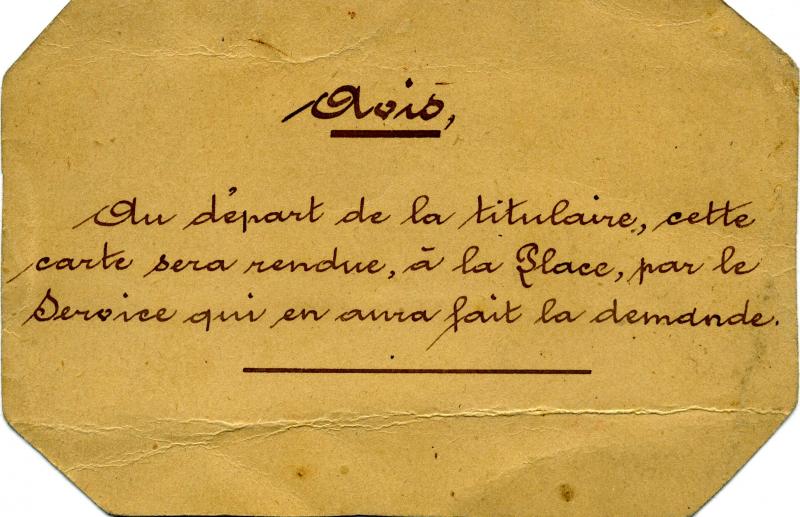 Avis,
Au départ de la titulaire, cette
carte sera rendue, à la Place, par le
Service qui en aura fait la demande.